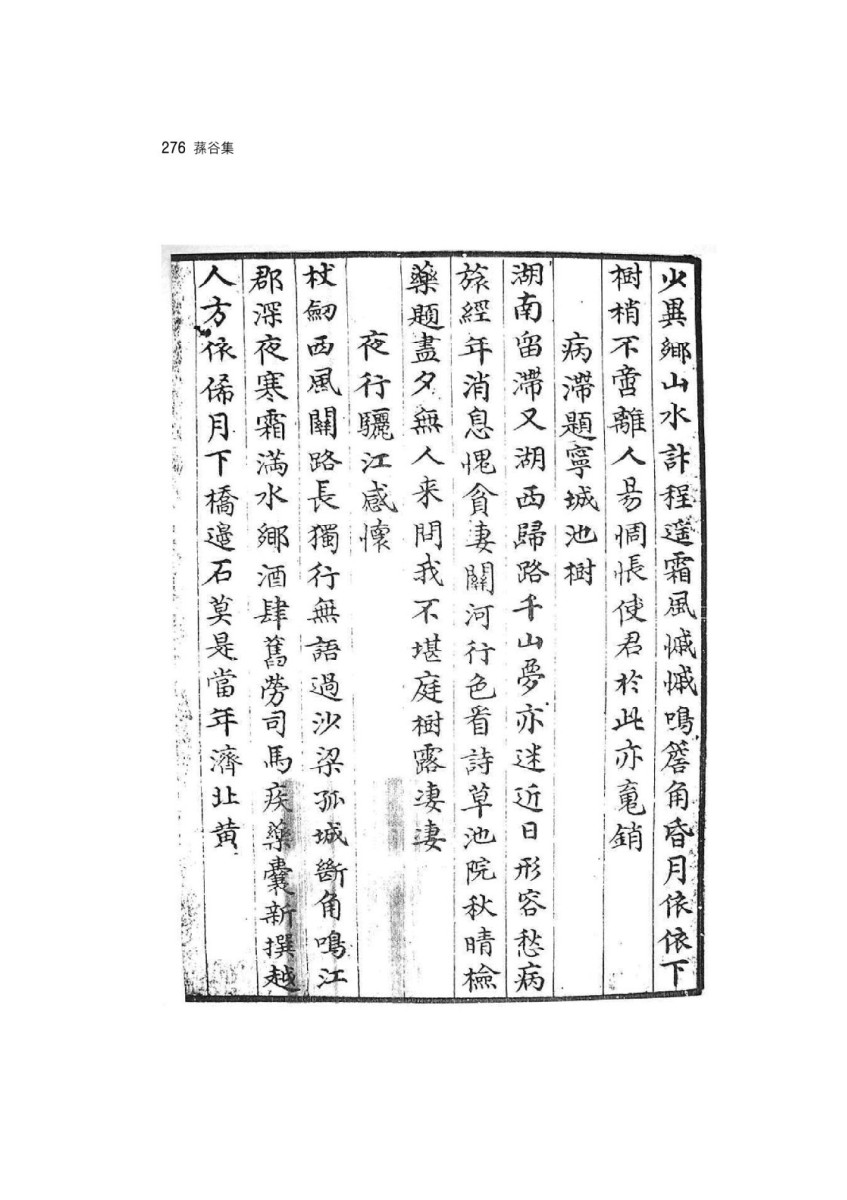 276 蓀谷集
少異鄉山水計程遙霜風慽慽鳴簷角昏月依依下
樹梢不啻離人易惆悵使君於此亦䰟銷
病滯題寧城池樹
湖南留滯又湖西歸路千山夢亦迷近日形容愁病
旅經年消息愧貧妻關河行色看詩草池院秋晴檢
藥題盡夕無人来問我不堪庭樹露凄凄
夜行驪江感懷
杖劒西風關路長獨行無語過沙梁孤城斷角鳴江
郡深夜寒霜滿水鄉酒肆舊勞司馬疾藥囊新撰越
人方依俙月下橋邉石莫是當年濟北黃